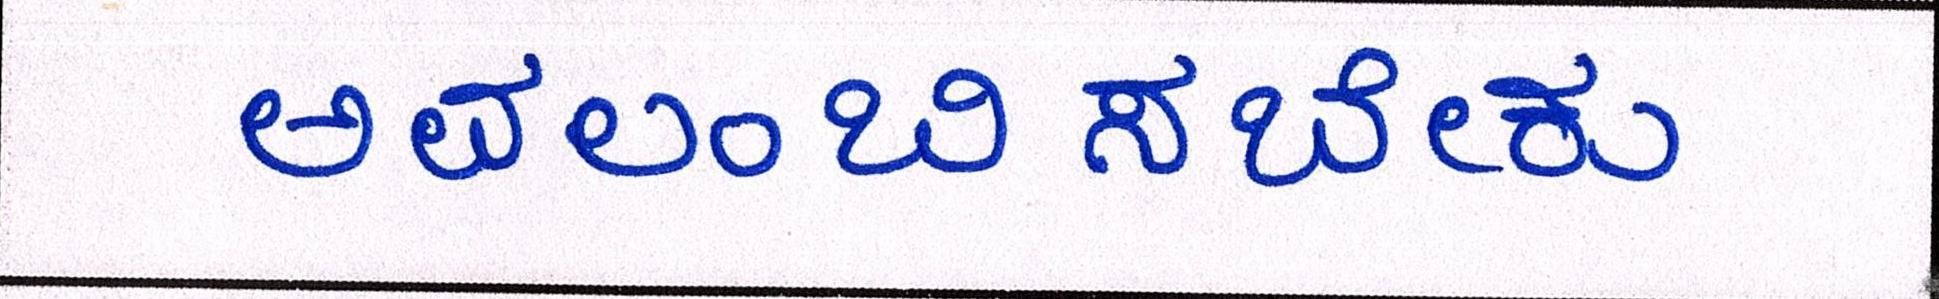 ಅವಲಂಬಿಸಬೇಕು